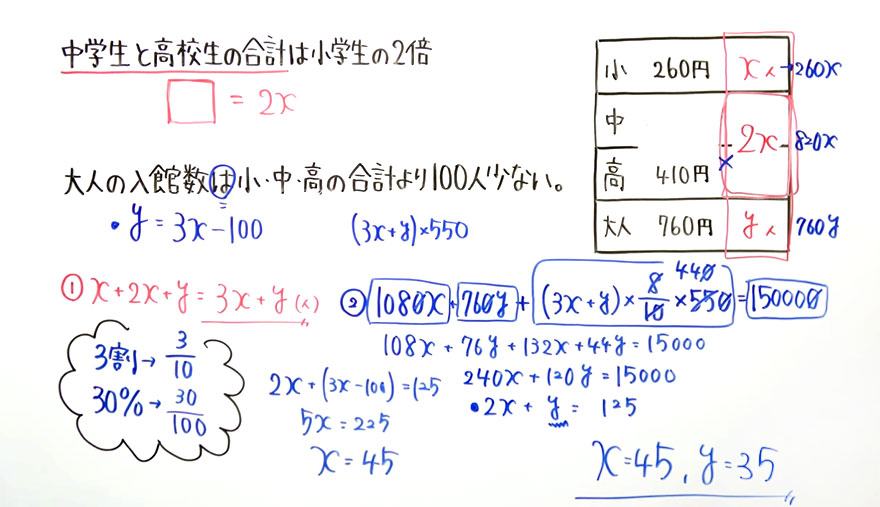 中学生と高校生の合計は小学生の2倍
□ = 2x
大人の入館数は小・中・高の合計より100人少ない。
・y = 3x-100 (3x+y)×550
小 260円 x人 →260x
中
2x 820x
高 410円 ×
大人 760円 y人 760y
① x+2x+y = 3x+y (人)
② 1080x+760y+(3x+y)×8/10×550=150000
440
3割→ 3/10
30%→ 30/100
108x + 76y + 132x+44y = 15000
240x+120y = 15000
・2x + y = 125
2x+(3x-100)=125
5x = 225
x = 45
x=45, y=35